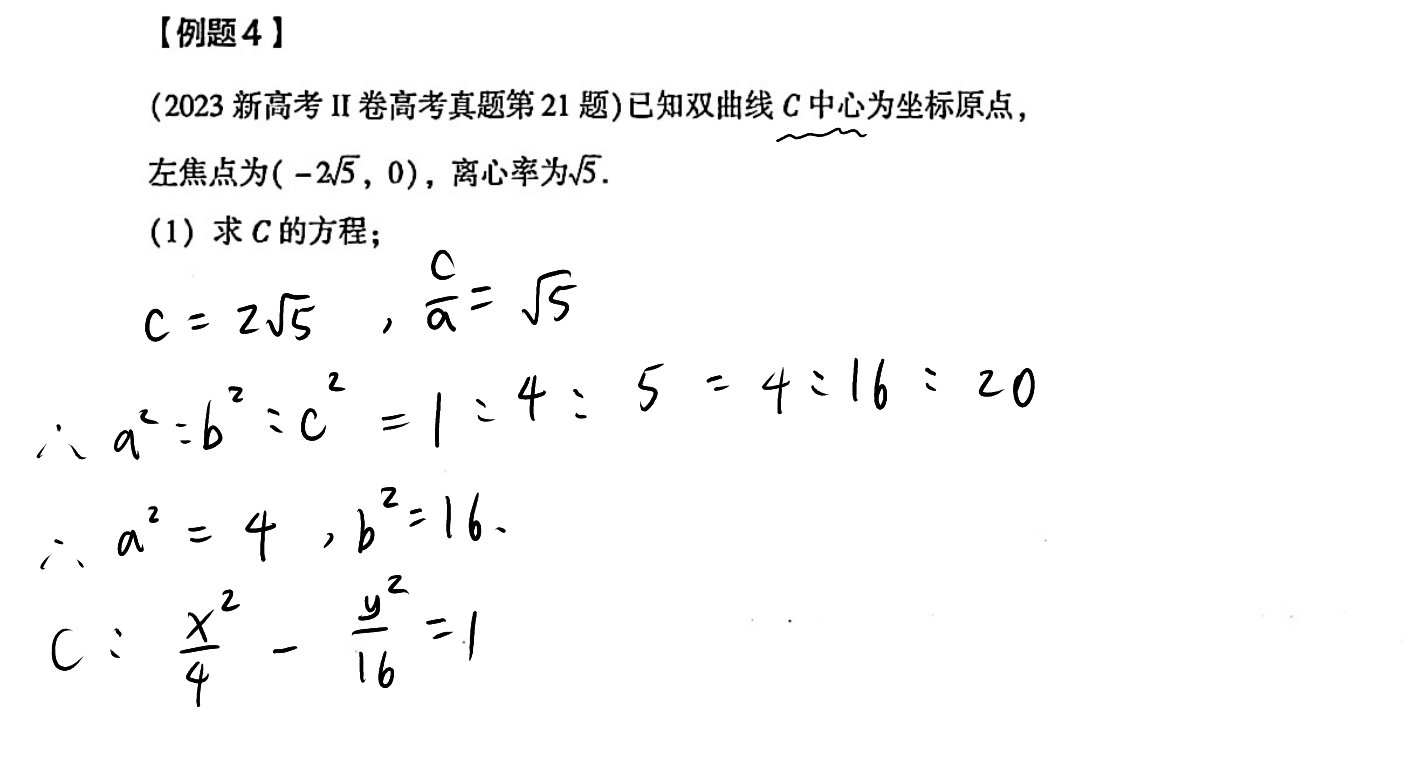 【例题4】
(2023 新高考 II 卷高考真题第 21 题)已知双曲线 C 中心为坐标原点，
左焦点为( -2√5, 0)，离心率为√5.
(1) 求 C 的方程；
c = 2√5 , c/a = √5
∴ a² : b² : c² = 1 : 4 : 5 = 4 : 16 : 20
∴ a² = 4 , b² = 16.
C : x²/4 - y²/16 = 1